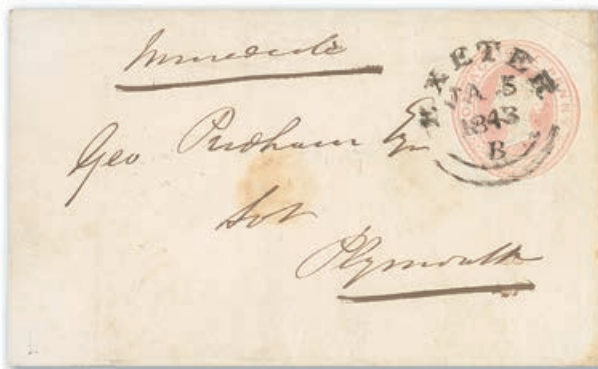 Immediate
EXETER
JA 5
1843
B
Geo Pridham Esqr
Solr
Plymouth